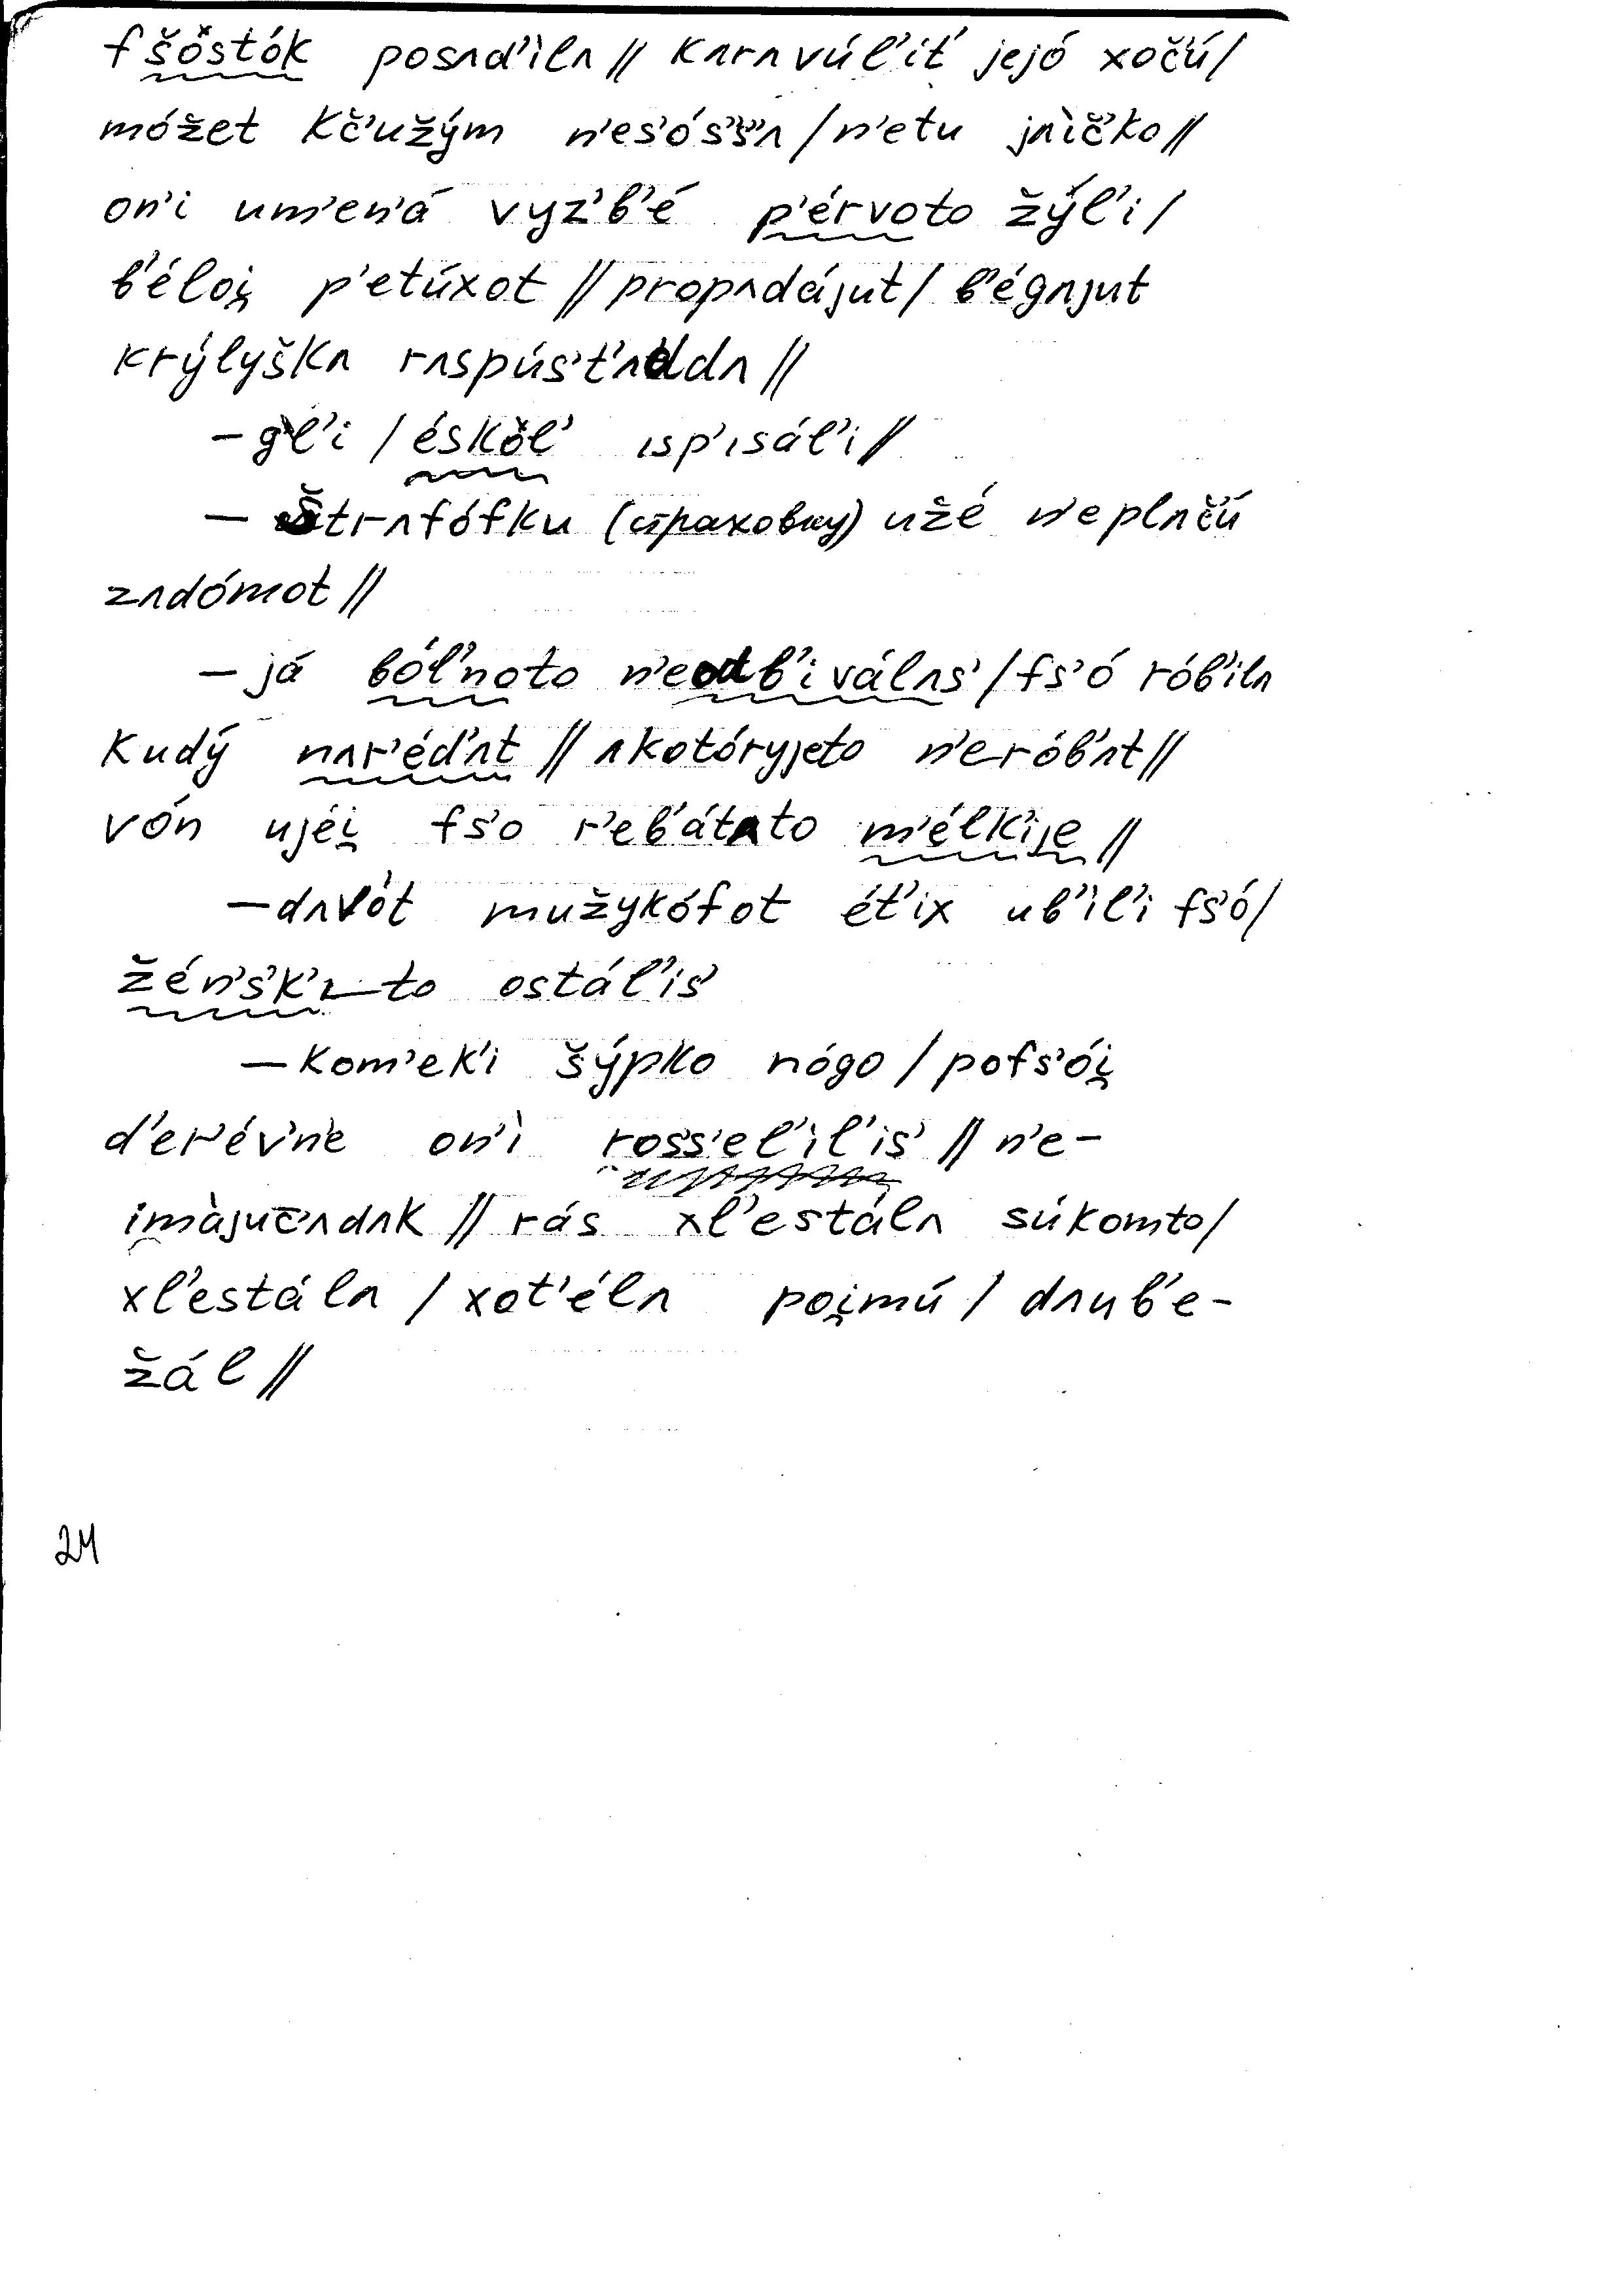 fšöstók posʌd’ìlʌ // kʌrʌvúl’it’ jejó xočú /
móžet kč’užým n’es’ós’š’ʌ / n’etu jʌìč’ko //
on’i um’en’á vyz’b’é p’érvoto žýl’i /
b’éloi̯ p’etúxot // propʌdájut / b’égʌjut
krýlyškʌ rʌspús’t’ʌddʌ //
– gl’i / éskol’ ısp’ısál’i //
– Štrʌfófku (страховку) užé n’eplʌčú
zʌdómot //
– já ból’noto n’eodb’iválʌs’ / fs’ó rób’ilʌ
kudý nʌr’éd’ʌt // ʌkotóryjeto n’erób’ʌt //
vón ujéi̯ fs’o r’eb’átʌto m’élk’ije //
– dʌvót mužykófot ét’ix ub’ìl’i fs’ó /
žén’s’k’ı–to ostál’is’
– kom’ek’i šýpko nógo / pofs’ói̯
d’er’év’n’e on’ì ros’s’el’ìl’is’ // n’e-
imàjuc̄ʌdʌk // rás xl’estálʌ súkomto /
xl’estálʌ / xot’élʌ poi̯mú / dʌub’e-
žál //
24